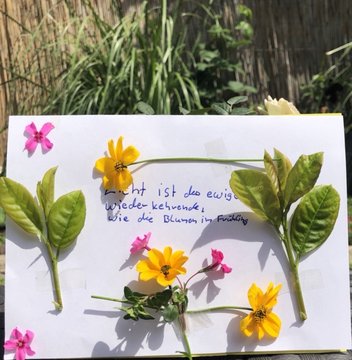 ist das ewig
wiederkehrende,
wie die Blumen im Frühling